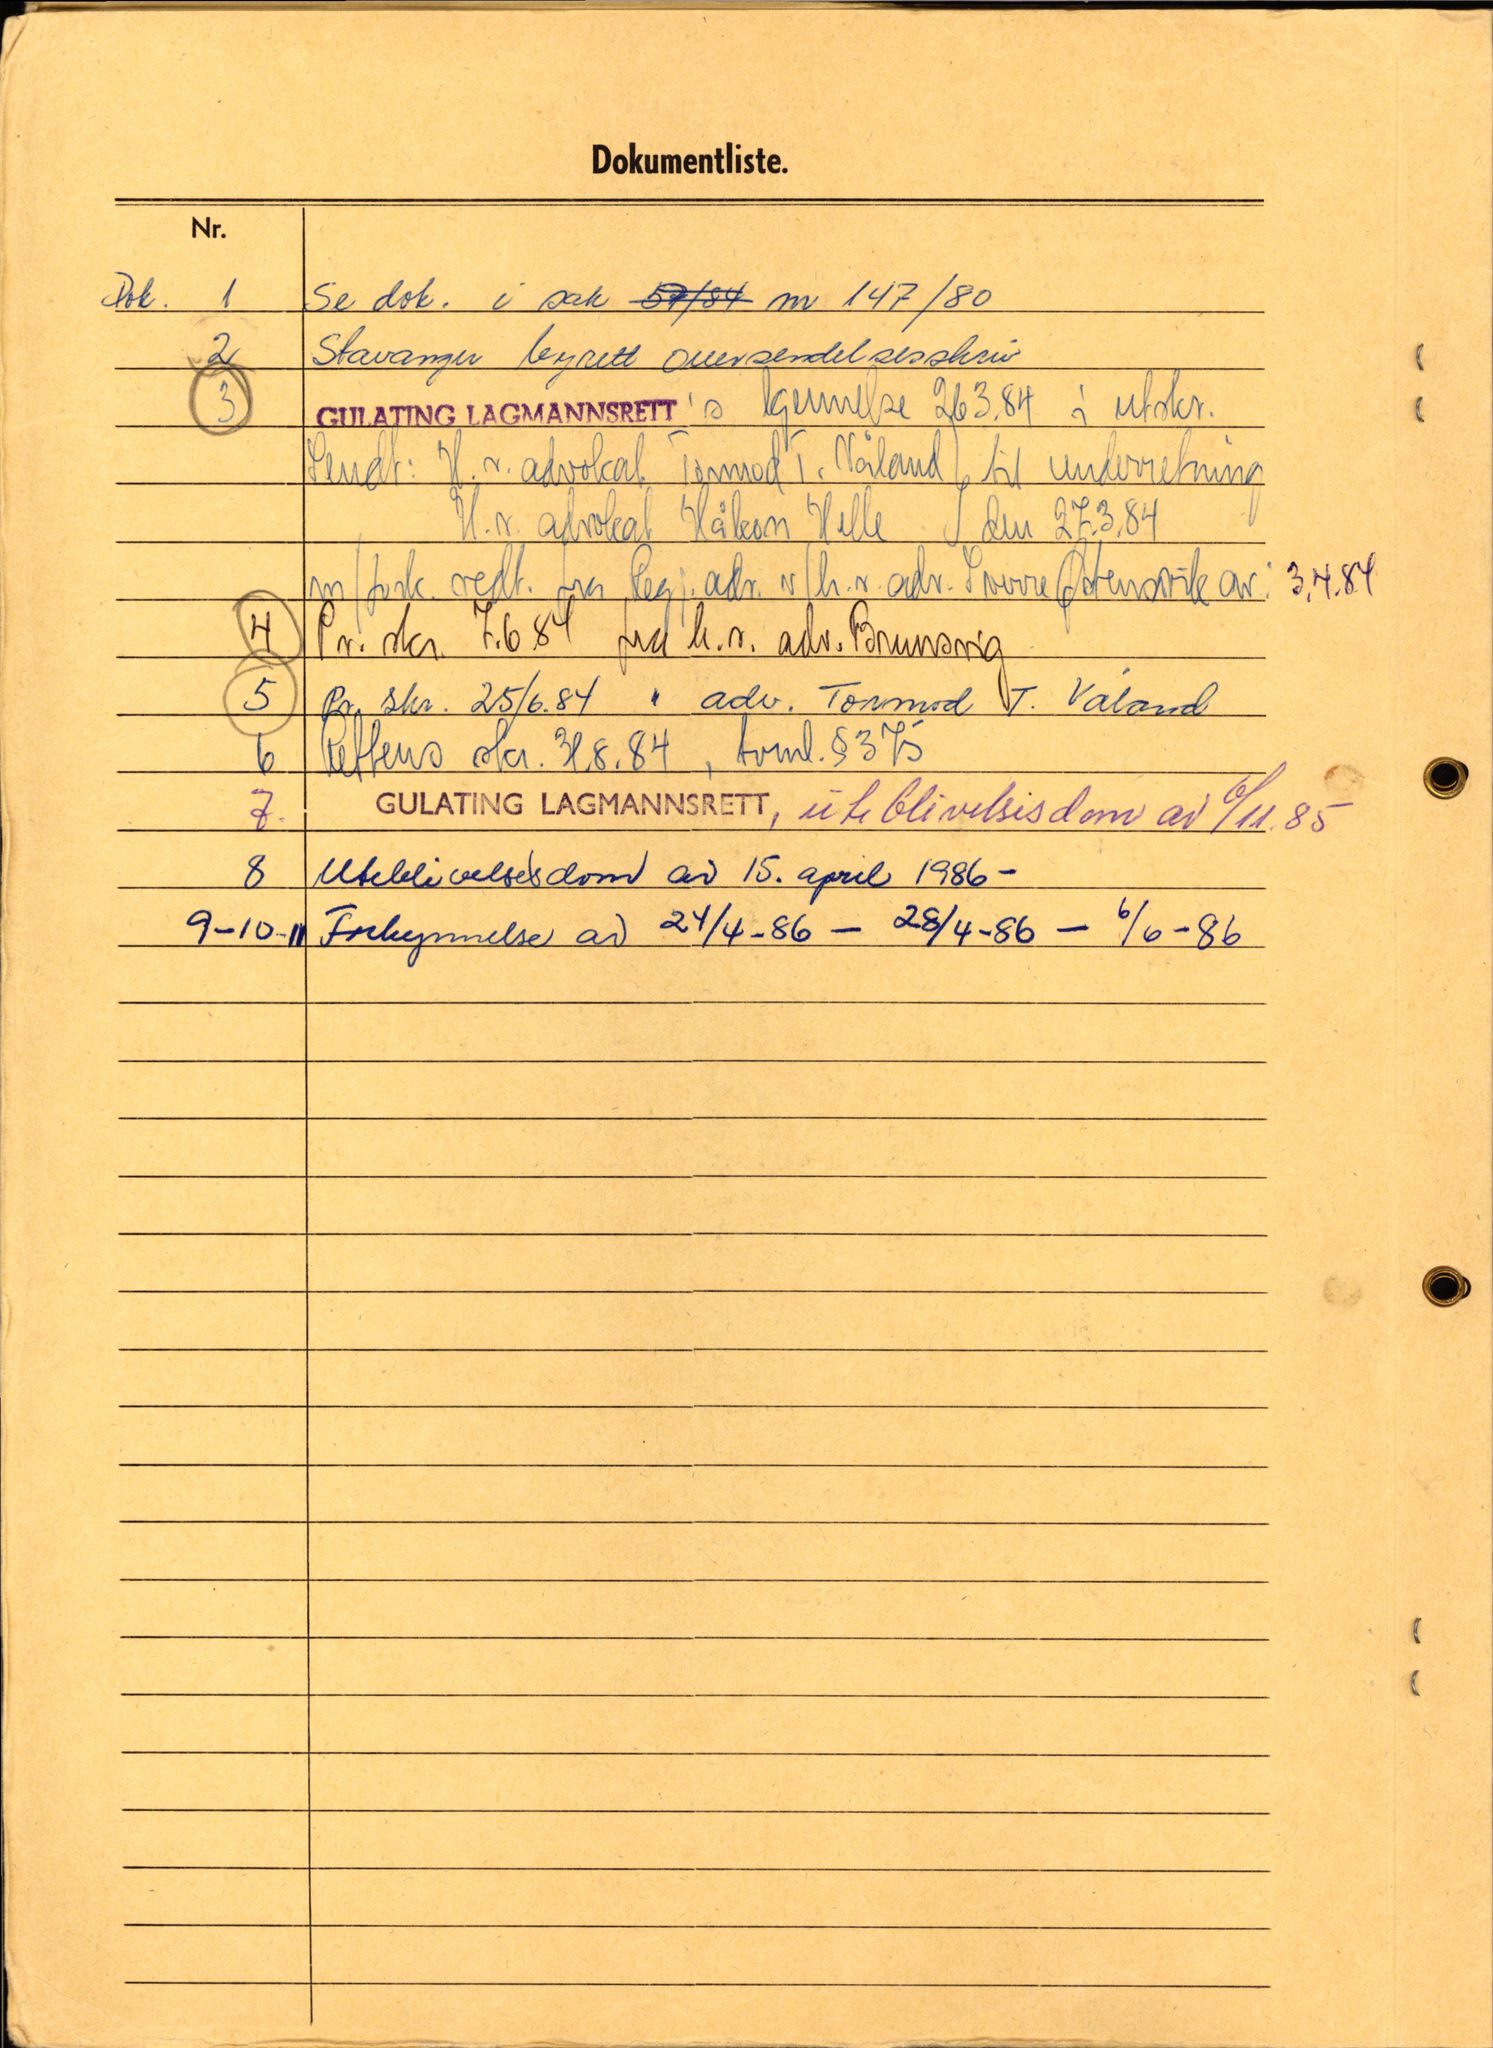 Dokumentliste.
Nr.
Dok. 1 Se dok. i sak 57/84 nr 147/80
2 Stavanger byrett oversendelsesskriv
3 GULATING LAGMANNSRETT's kjennelse 26.3.84 i utskr.
Sendt: H.r. advokat Tormod T. Våland } til underretning
H.r. advokat Håkon Helle } den 27.3.84
m/fork. vedt. fra Regj.adv. v/h.r. adv. Sverre Østensvik av: 3.4.84
4 Pr. skr. 7.6.84 fra h.r. adv. Brunsvig
5 Pr. skr. 25/6.84 " adv. Tormod T. Våland
6 Rettens skr. 31.8.84, tvml. § 375
7. GULATING LAGMANNSRETT, uteblivelsesdom av 6/11.85
8 Uteblivelsesdom av 15. april 1986 -
9-10-11 Forkynnelse av 24/4-86 — 28/4-86 — 6/6-86